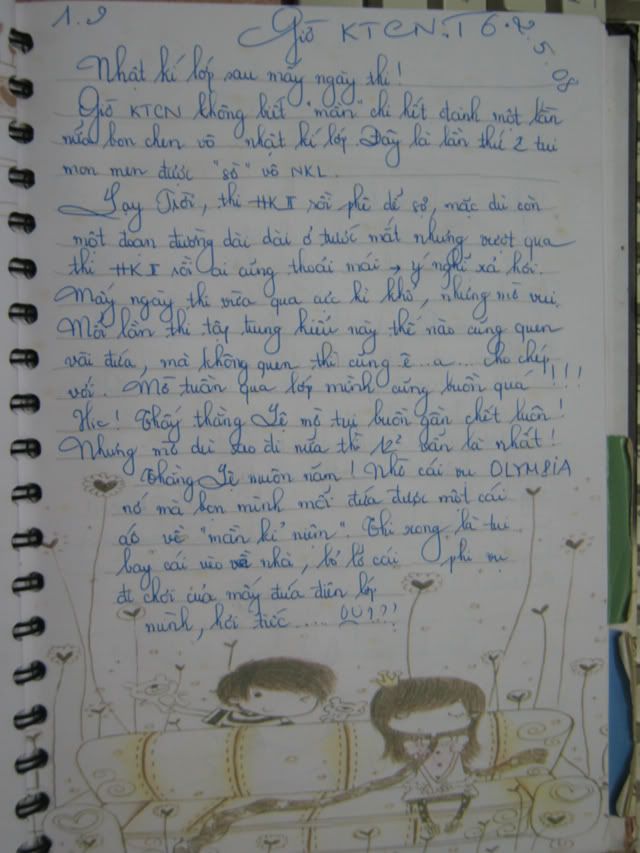 1.9
Giờ KTCN. T6. 2. 5. 08
Nhật kí lớp sau mấy ngày thi!
Giờ KTCN không biết "mần" chi hết dành một lần
nữa bon chen vô nhật kí lớp. Đây là lần thứ 2 tui
mon men được "sờ" vô NKL.
Lạy Trời, thi HKII rồi phê dể sợ, mặc dù còn
một đoạn đường dài dài ở trước mắt nhưng vượt qua
thi HKI rồi ai cũng thoải mái → ý nghĩ xả hơi.
Mấy ngày thi vừa qua cực kì khổ, nhưng mò vui.
Mỗi lần thi tập trung kiểu này thế nào cũng quen
vài đứa, mà không quen thì cũng ê..a.... cho chép
với. Mò tuần qua lớp mình cũng buồn quá!!!
Hic! Thấy thằng Lệ mò tụi buồn gần chết luôn!
Nhưng mò dù sao đi nữa thì 12² vẫn là nhất!
Thằng Lệ muôn năm! Nhờ cái vụ OLYMBIA
nó mà bọn mình mỗi đứa được một cái
áo về "mần kỉ niệm". Thi xong là tui
bay cái vèo về nhà, bỏ lỡ cái phi vụ
đi chơi của mấy đứa điên lớp
mình, hơi tiếc ..... OU?!?!